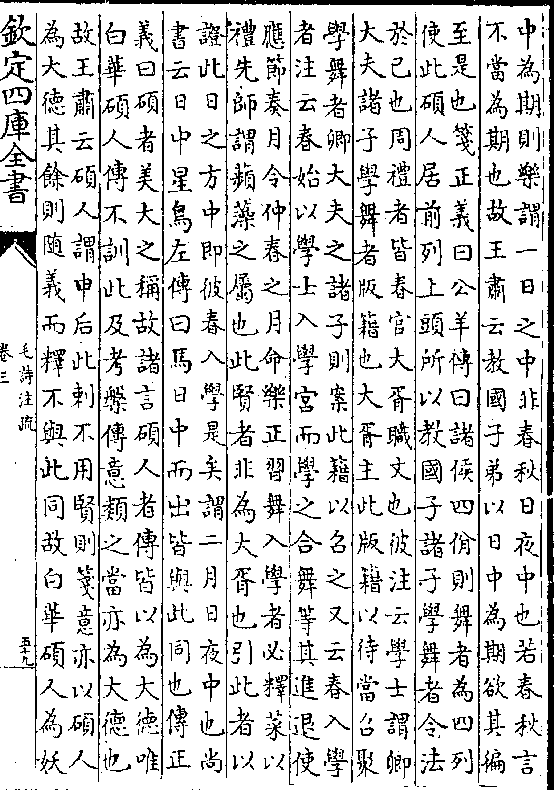 中為期則樂謂一日之中非春秋日夜中也若春秋言
不當為期也故王肅云教國子弟以日中為期欲其徧
至是也箋正義曰公羊傳曰諸侯四佾則舞者為四列
使此碩人居前列上頭所以教國子諸子學舞者令法
於己也周禮者皆春官大胥職文也彼注云學士謂卿
大夫諸子學舞者版籍也大胥主此版籍以待當召聚
學舞者卿大夫之諸子則案此籍以召之又云春入學
者注云春始以學士入學宮而學之合舞等其進退使
應節奏月令仲春之月命樂正習舞入學者必釋菜以
禮先師謂蘋藻之屬也此賢者非為大胥也引此者以
證此日之方中即彼春入學是矣謂二月日夜中也尚
書云日中星鳥左傳曰馬日中而出皆與此同也傳正
義曰碩者美大之稱故諸言碩人者傳皆以為大德唯
白華碩人傳不訓此及考槃傳意類之當亦為大德也
故王肅云碩人謂申后此刺不用賢則箋意亦以碩人
為大德其餘則隨義而釋不與此同故白華碩人為妖
欽定四庫全書
毛詩注疏
卷三
五十九